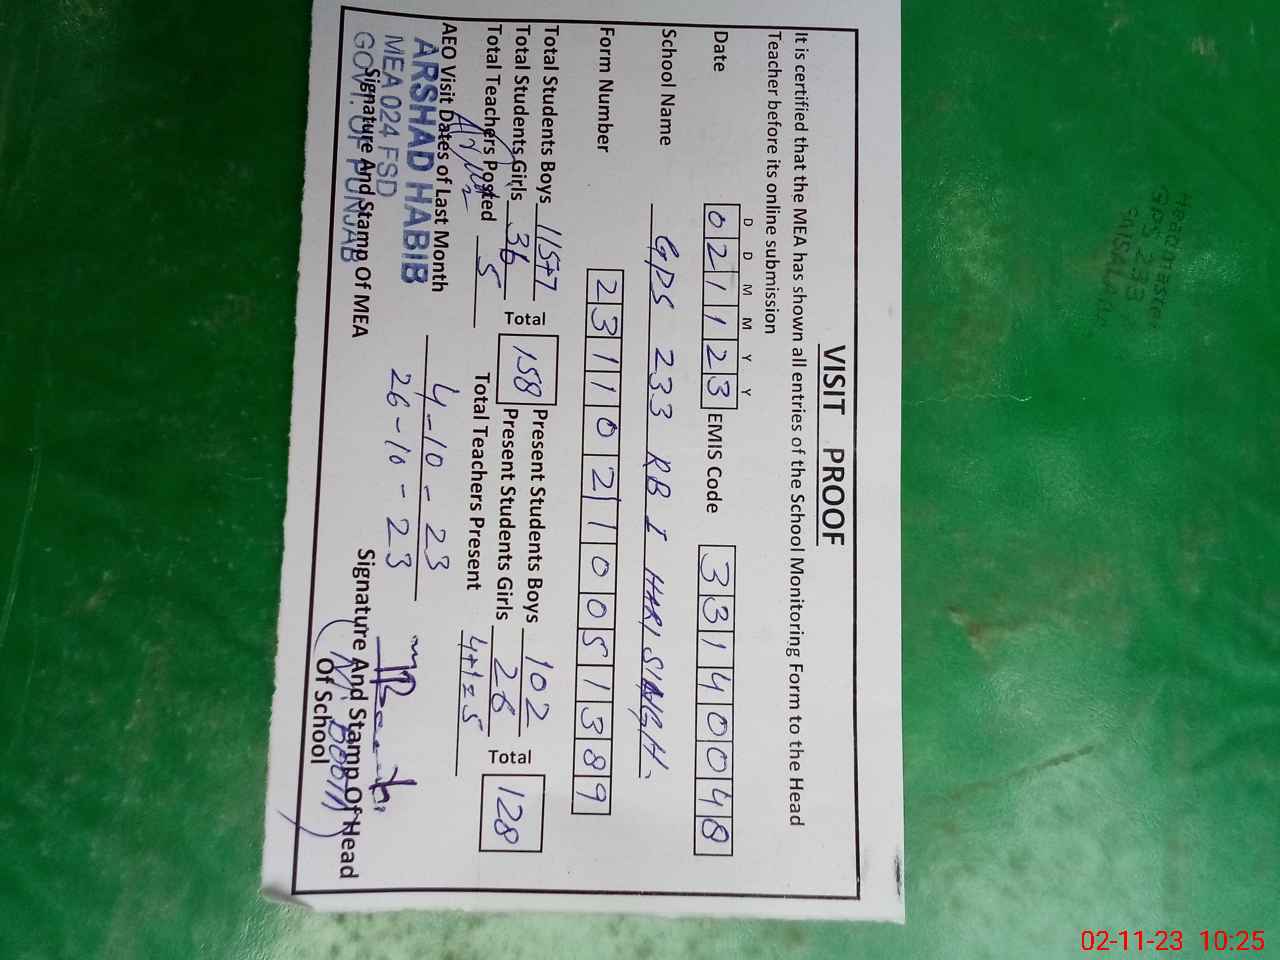 VISIT PROOF
It is certified that the MEA has shown all entries of the School Monitoring Form to the Head
Teacher before its online submission
D D M M Y Y
Date 021123 EMIS Code 33140048
School Name GPS 233 RB I HARI SINGH.
Form Number 23110210051389
Total Students Boys 115+7 Total 158 Present Students Boys 102 Total 128
Total Students Girls 36 Present Students Girls 26
Total Teachers Posted 5 Total Teachers Present 4+1=5
AEO Visit Dates of Last Month 4-10-23
26-10-23
ARSHAD HABIB
MEA 024 FSD
GOVT. OF PUNJAB
Signature And Stamp Of MEA
Signature And Stamp Of Head
Of School
Headmaster
GPS 233
02-11-23 10:25